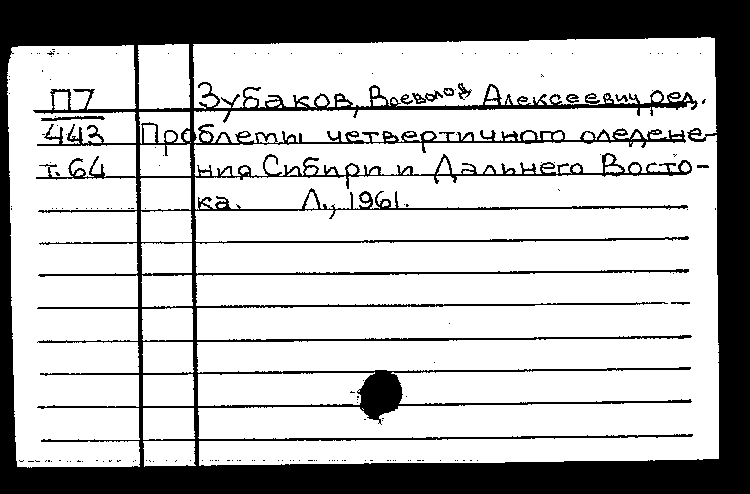 П7 Зубаков, Всеволод Алексеевич, ред.
443 Проблемы четвертичного оледене-
т. 64 ния Сибири и Дальнего Восто-
ка. Л., 1961.